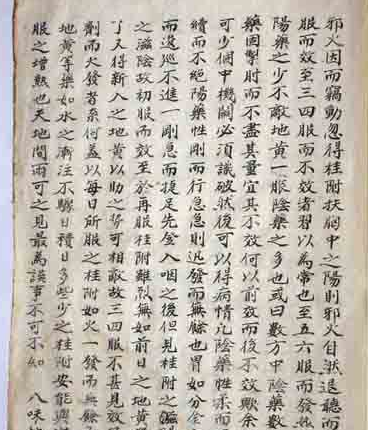 邪火因而竊動忽得桂附扶胸中之陽則邪火自然退聽而
服而效至三四服而不效者習以為常也至五六服而發熱
陽藥之少不敵地黃一派陰藥之多也或曰數方中陰藥數
藥固掣肘而不盡其量宜其不效何以前效而後不效歟余
可少個中機關必須識破然後可以得病情凡陰藥性柔而
續而不絕陽藥性剛而行急急則迅發而無餘也冐如分金
而逡巡不進一剛急而捷足先登入咽之後但見桂附之
之滋陰故初服而效至於再服桂附雖烈無如前日之地黃
了又得新入之地黃以助之勢可相敵故三四服不甚見效
劑而火發者系何蓋以每日所服之桂附如火一發而無餘
地黃等藥如水之漸注不驟日積日多些少之桂附安能與
服之增熱也天地間兩可之見最為誤事不可不知 八味